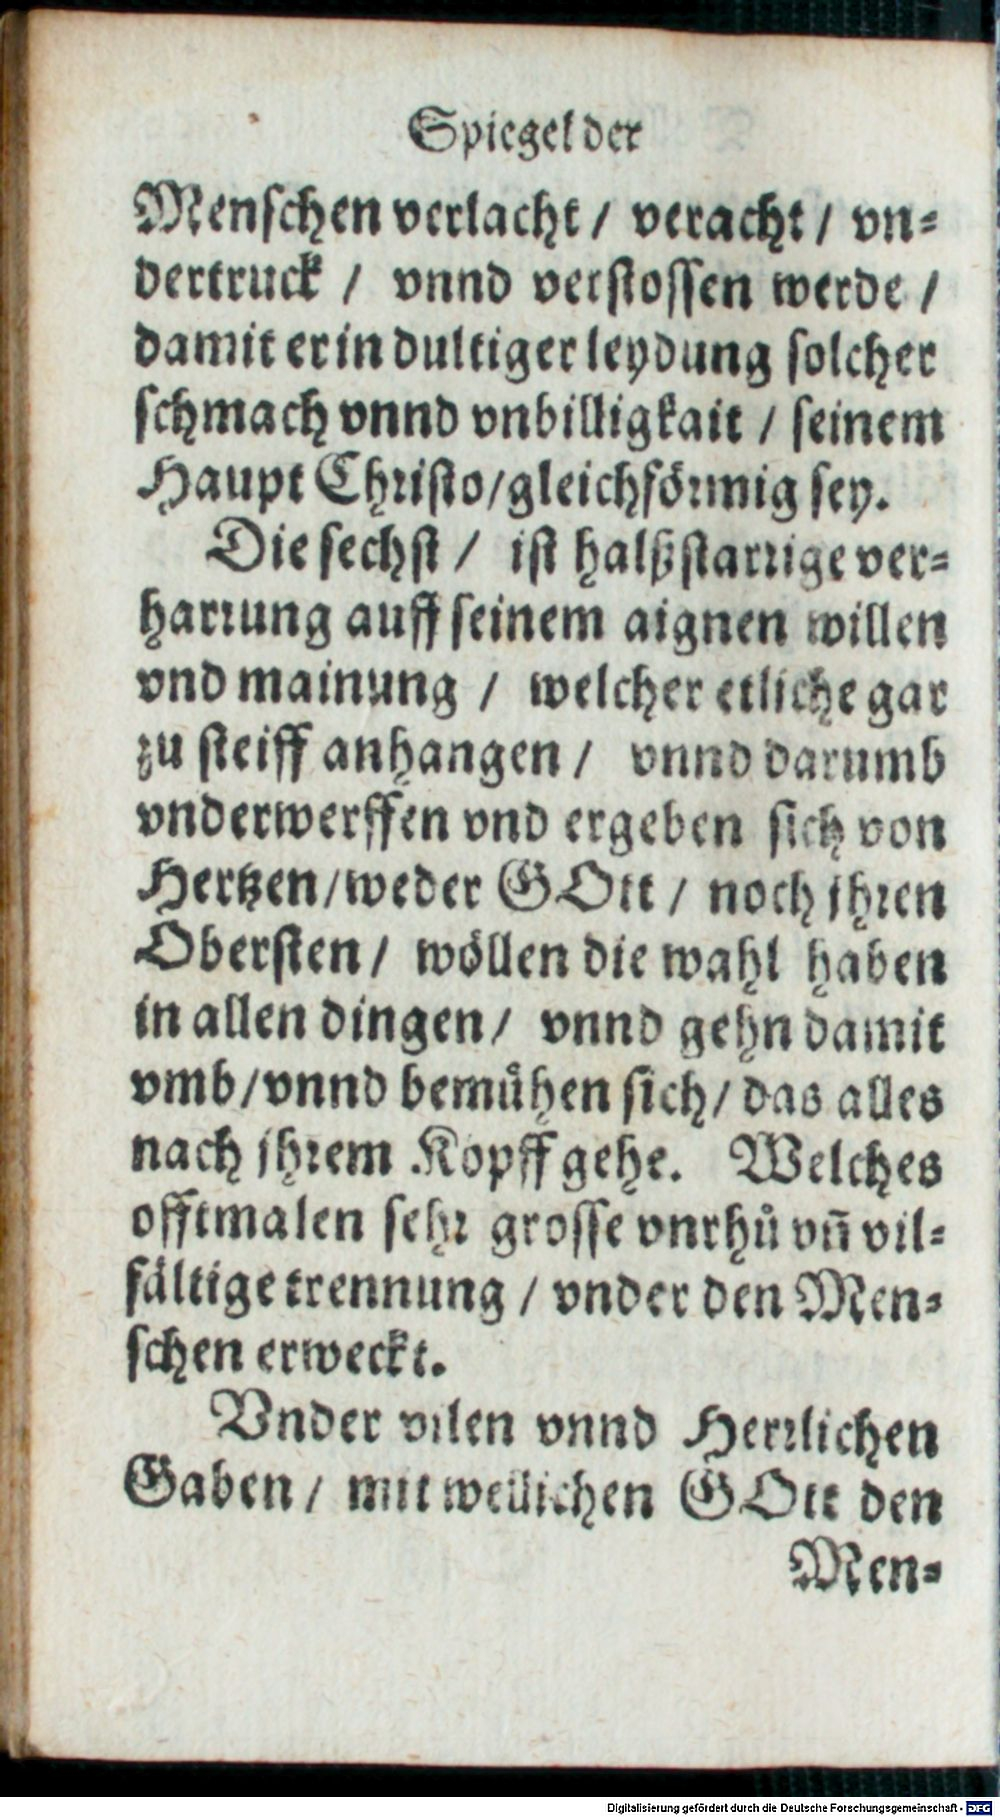 Spiegel der
Menschen verlacht / veracht / vn⸗
dertruck / vnnd verstossen werde /
damit er in dultiger leydung solcher
schmach vnnd vnbilligkait / seinem
Haupt Christo / gleichförmig sey.
Die sechst / ist halßstarrige ver⸗
harrung auff seinem aignen willen
vnd mainung / welcher etliche gar
zu steiff anhangen / vnnd darumb
vnderwerffen vnd ergeben sich von
Hertzen / weder GOtt / noch jhren
Obersten / wöllen die wahl haben
in allen dingen / vnnd gehn damit
vmb / vnnd bemühen sich / das alles
nach jhrem Kopff gehe. Welches
offtmalen sehr grosse vnrhů vñ vil⸗
fältige trennung / vnder den Men⸗
schen erweckt.
Vnder vilen vnnd Herrlichen
Gaben / mit wellichen GOtt den
Men⸗
Digitalisierung gefördert durch die Deutsche Forschungsgemeinschaft - DFG